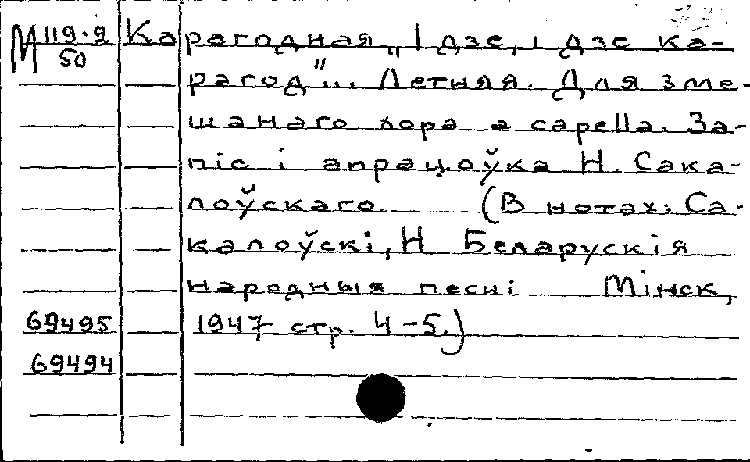 М 119.2 Карагодная „І дзе, і дзе ка-
50
рагод"... Летняя. Для зме-
шанаго хора a capella. За-
піс і апрацоўка Н. Сака-
лоўскаго. (В нотах: Са-
калоўскі, Н Беларускія
народныя песні Мінск,
69495 1947 стр. 4-5.)
69494